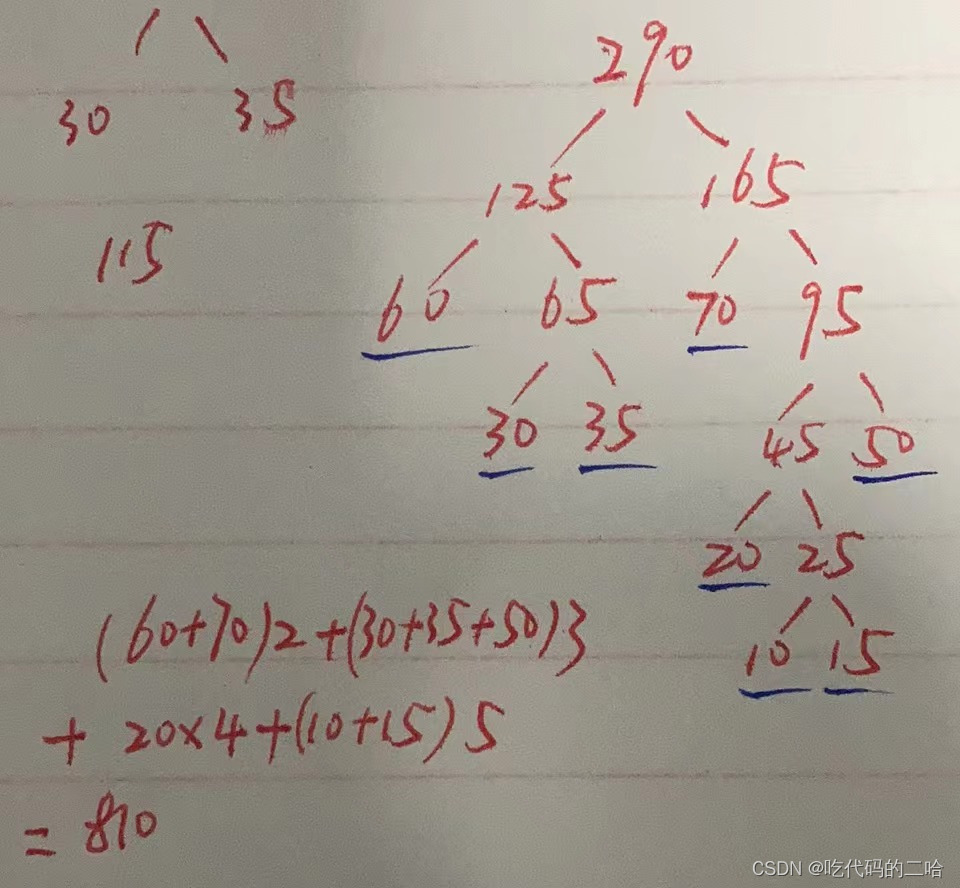 30 35
115
290
125 165
60 65 70 95
30 35 45 50
20 25
10 15
(60+70)2+(30+35+50)3
+ 20×4+(10+15)5
= 810
CSDN @吃代码的二哈